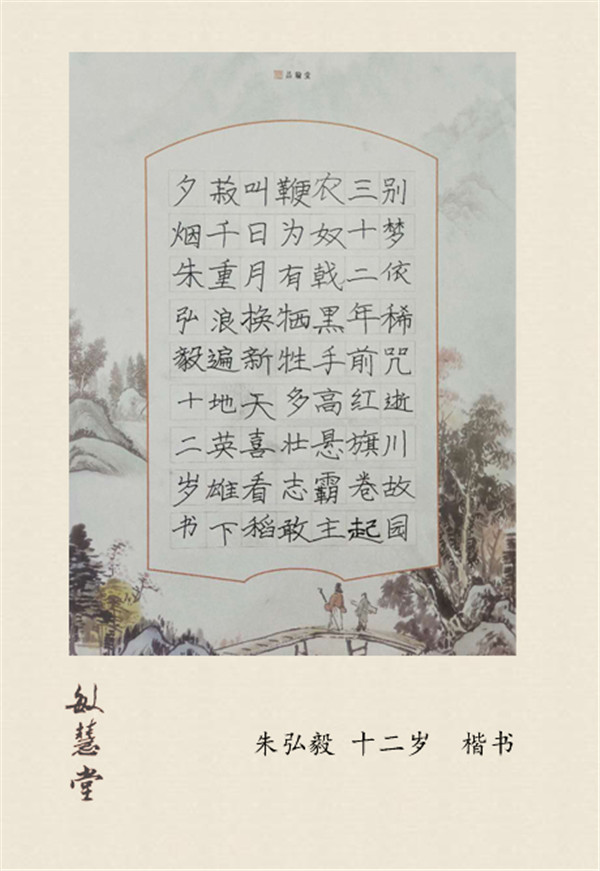 品翰堂
别梦依稀咒逝川故园
三十二年前红旗卷起
农奴戟黑手高悬霸主
鞭为有牺牲多壮志敢
叫日月换新天喜看稻
菽千重浪遍地英雄下
夕烟朱弘毅十二岁书
敏慧堂
朱弘毅 十二岁 楷书